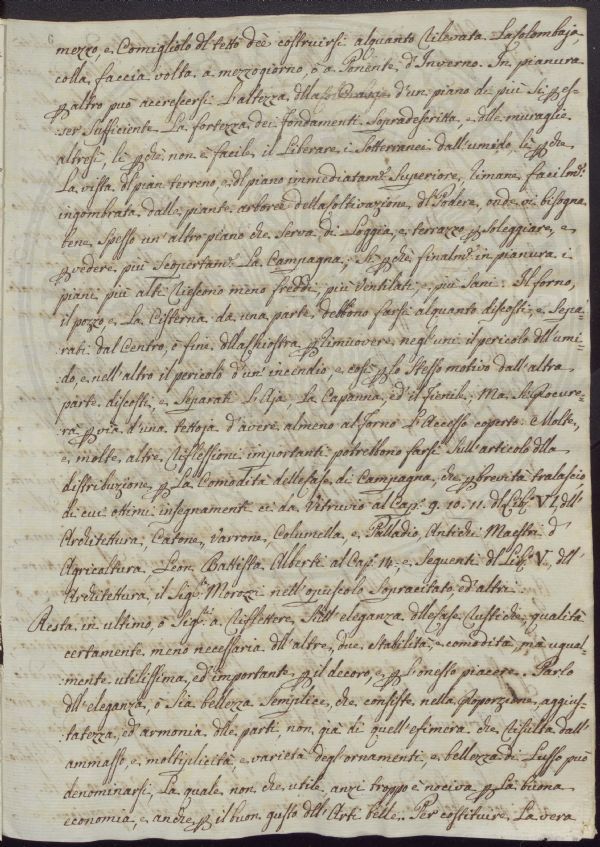 6
mezzo, e Comigliolo dl tetto dèe costruirsi alquanto rilevata La Colombaja,
colla faccia volta a mezzogiorno, ò a Ponente d'Inverno. In pianura
p altro può accrescersi l'altezza dlla d'un piano di più sì p es-
ser sufficiente La fortezza dei fondamenti Sopradescritta, e dlle muraglie
altresì, sì pchè non è facile il Liberare i Sotterranei dall'umido, sì pchè
La vista dl pian terreno, e dl piano immediatam.e Superiore, rimane facilm.e
ingombrata dalle piante arboree della Coltivazione dl Podere, onde vi bisogna
bene spesso un altro piano che serva di Loggia, e terrazzo p Soleggiare, e
p vedere più Scopertam.e La Campagna; Sì pchè finalm.e in pianura i
piani più alti riescono meno freddi, più ventilati, e più Sani. Il forno,
il pozzo e La Cisterna da una parte debbono farsi alquanto discosti, e Sepa-
rati dal Centro, ò fine dlla Chiostra p rimuovere negl'uni il pericolo dll'umi-
do, e nell'altro il pericolo d'un incendio e così p lo Stesso motivo dall'altra
parte discosti, e Separati L'Aja, La Capanna, ed il Fienile; Ma Si procure-
rà p via d'una tettoja d'avere almeno al Forno L'Accesso coperto. Molte,
e molte altre riflessioni importanti potrebbono farsi Sull'articolo dlla
distribuzione, p La Comodità delle Case di Campagna, che p brevità tralascio
di cui ottimi insegnamenti ci dà Vitruvio al Cap. 9. 10. 11. dl Lib. VI. dll'
Architettura, Catone, Varrone, Columella, e Palladio, Antichi Maestri d'
Agricoltura, Leon Battista Alberti al Cap. 14., e Seguenti dl Lib. V. dll'
Architettura, il Sig.r Morozzi nell'opuscolo Sopracitato ed altri.
Resta in ultimo, ò Sig.ri a riflettere Sull'eleganza dlle Case rustiche, qualità
certamente meno necessaria dll'altre due stabilità, e comodità, ma ugual-
mente utilissima, ed importante p il decoro, e p l'onesto piacere. Parlo
dll'eleganza, ò Sia bellezza Semplice, che consiste nella proporzione, aggius-
tatezza, ed armonia dlle parti, non già di quell'efimera che risulta dall'
ammasso, e moltiplicità, e varietà degl'ornamenti, e bellezza di Lusso può
denominarsi, La quale non che utile, anzi troppo è nociva p La buona
economia, e anche p il buon gusto dll'Arti belle. Per costituire La vera